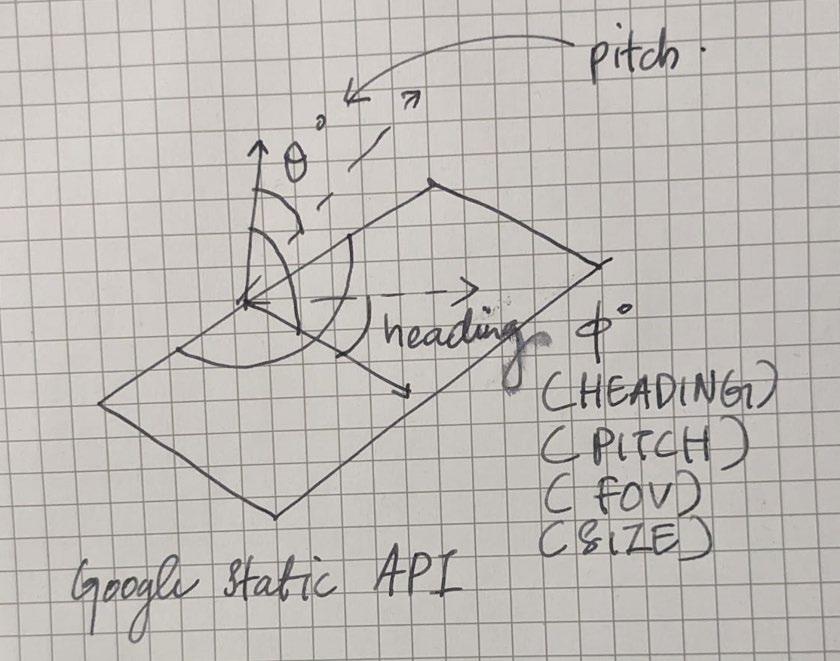 pitch.
θ°
heading φ°
(HEADING)
(PITCH)
(FOV)
(SIZE)
Google Static API